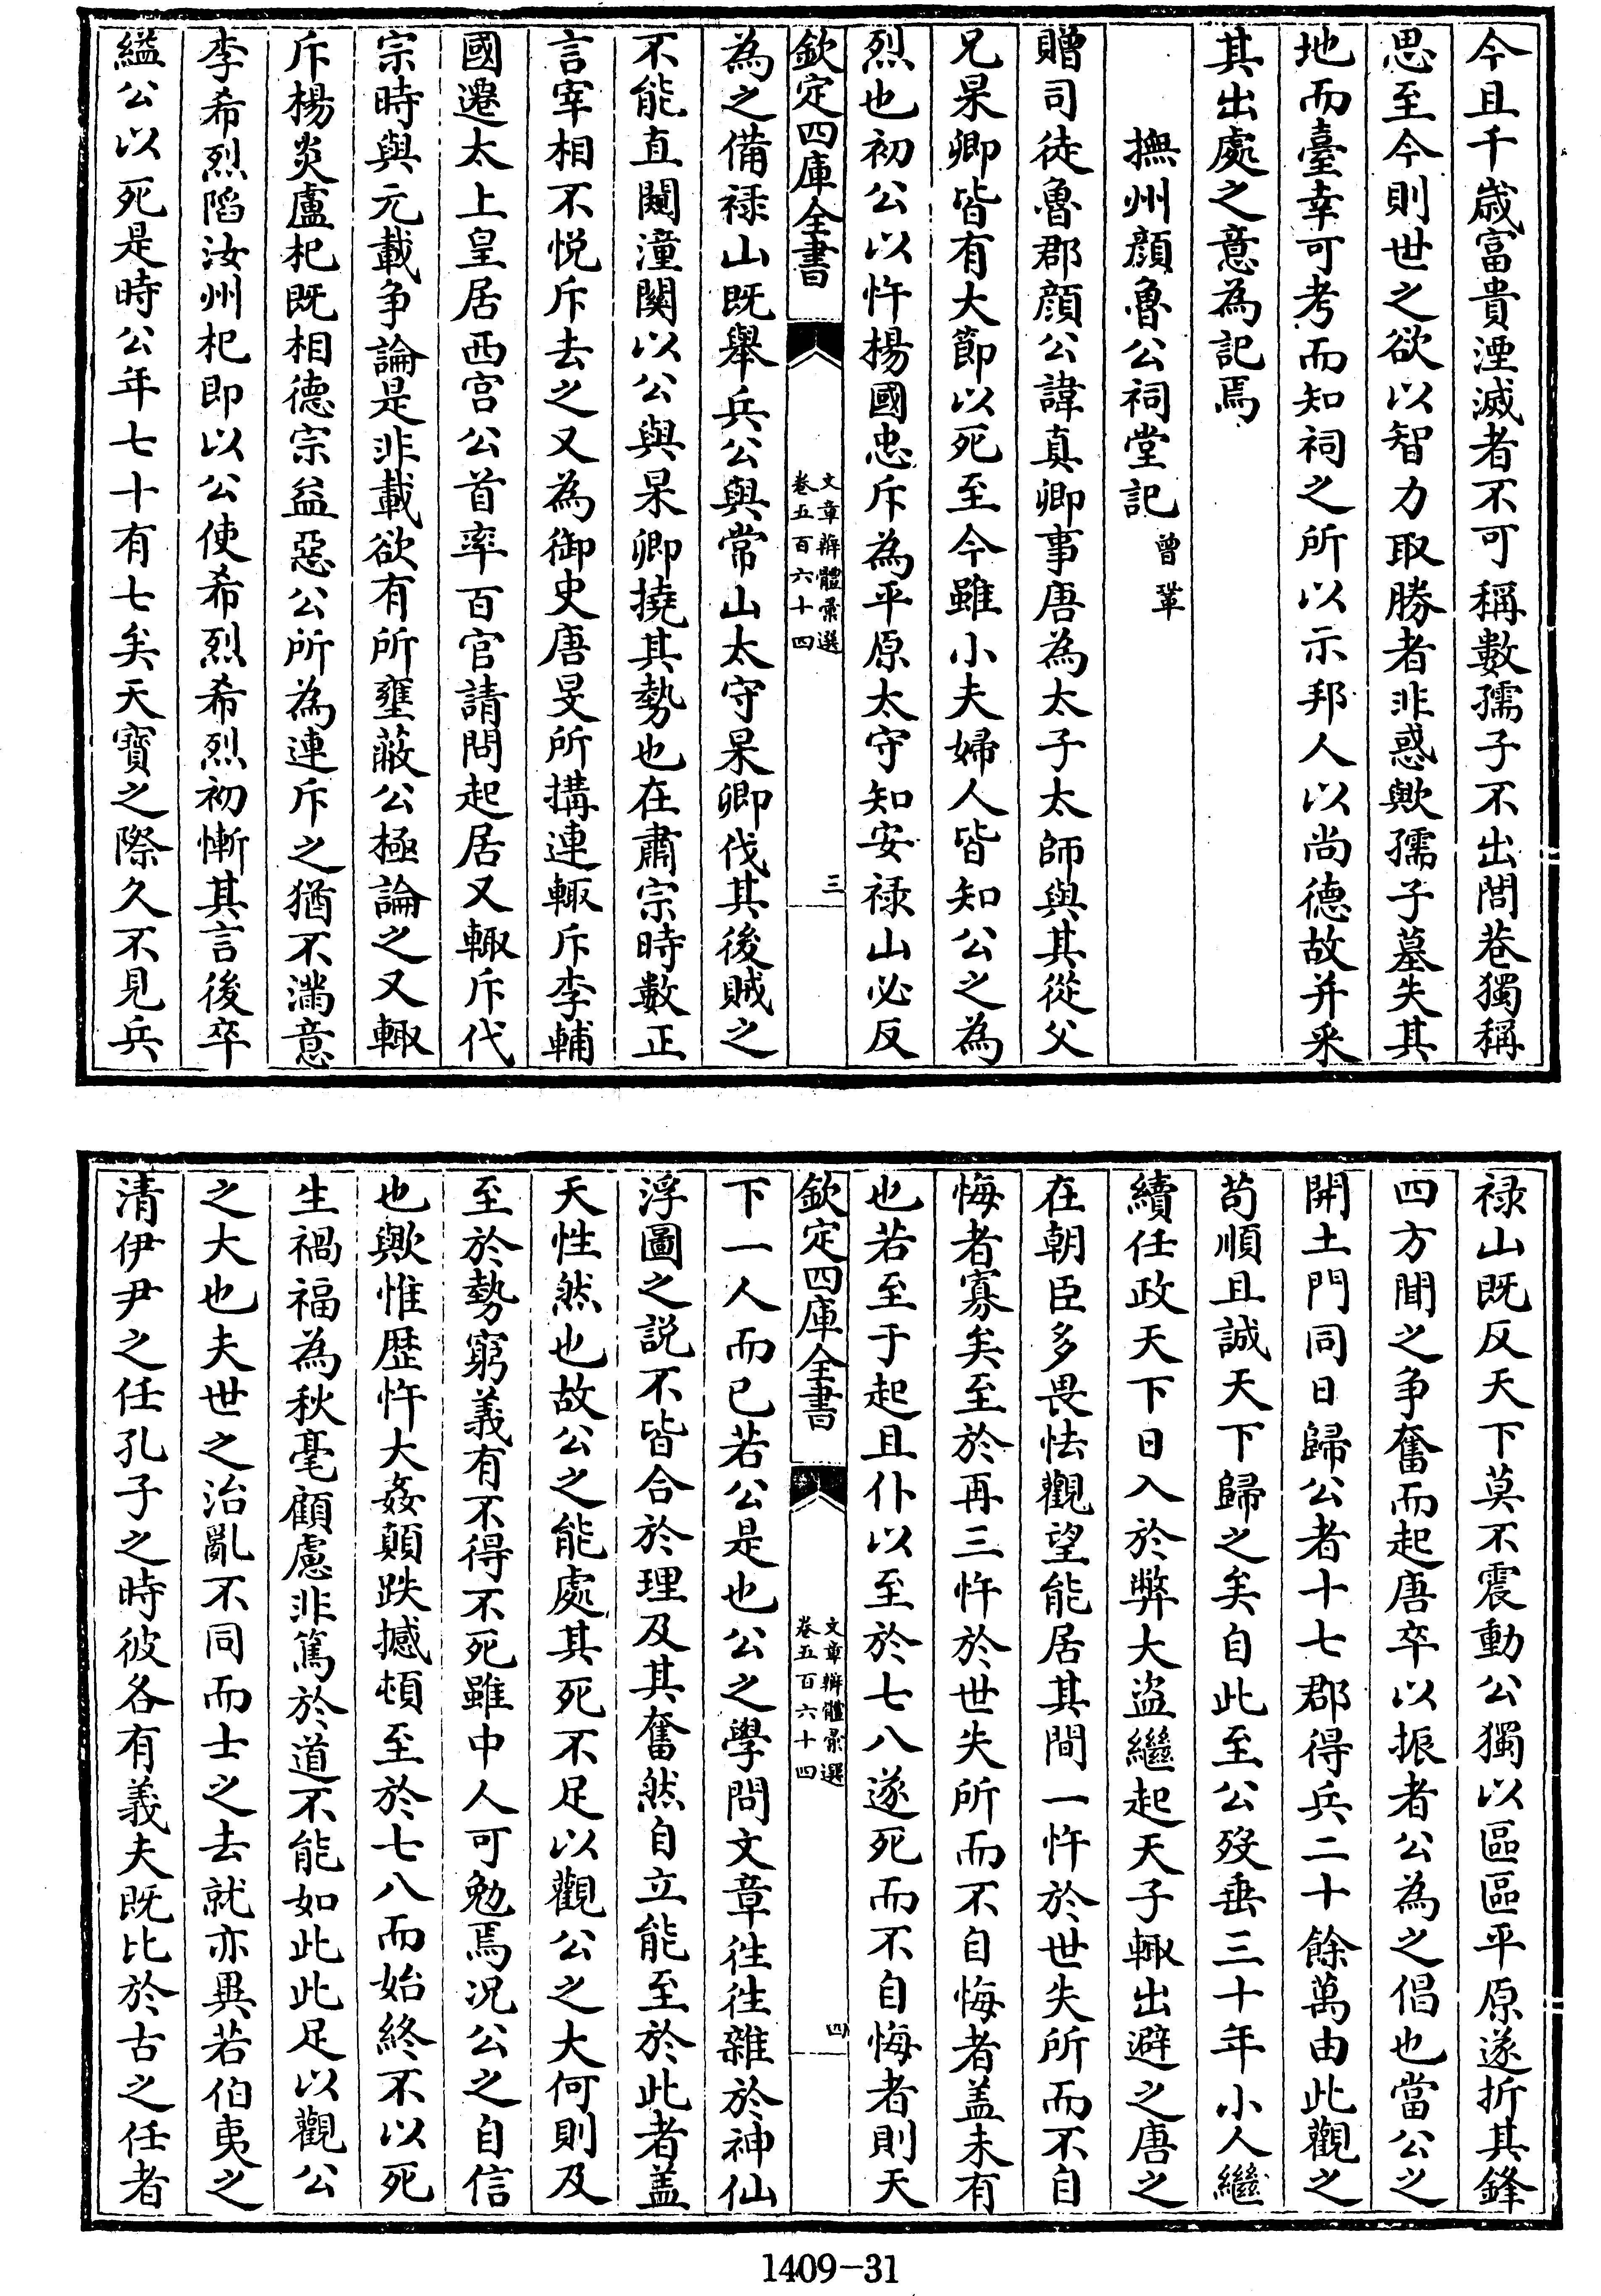 今且千歲富貴湮滅者不可稱數孺子不出閭巷獨稱
思至今則世之欲以智力取勝者非惑歟孺子墓失其
地而臺幸可考而知祠之所以示邦人以尚德故并采
其出處之意為記焉
撫州顔魯公祠堂記 曾鞏
贈司徒魯郡顔公諱真卿事唐為太子太師與其從父
兄杲卿皆有大節以死至今雖小夫婦人皆知公之為
烈也初公以忤楊國忠斥為平原太守知安禄山必反
欽定四庫全書
文章辨體彚選
卷五百六十四
三
為之備禄山既舉兵公與常山太守杲卿伐其後賊之
不能直闚潼關以公與杲卿撓其勢也在肅宗時數正
言宰相不悦斥去之又為御史唐旻所搆連輒斥李輔
國遷太上皇居西宫公首率百官請問起居又輒斥代
宗時與元載争論是非載欲有所壅蔽公極論之又輒
斥楊炎盧杞既相德宗益惡公所為連斥之猶不滿意
李希烈陷汝州杞即以公使希烈希烈初慚其言後卒
縊公以死是時公年七十有七矣天寶之際久不見兵
禄山既反天下莫不震動公獨以區區平原遂折其鋒
四方聞之争奮而起唐卒以振者公為之倡也當公之
開土門同日歸公者十七郡得兵二十餘萬由此觀之
苟順且誠天下歸之矣自此至公歿垂三十年小人繼
續任政天下日入於弊大盜繼起天子輒出避之唐之
在朝臣多畏怯觀望能居其間一忤於世失所而不自
悔者寡矣至於再三忤於世失所而不自悔者盖未有
也若至于起且仆以至於七八遂死而不自悔者則天
欽定四庫全書
文章辨體彚選
卷五百六十四
四
下一人而已若公是也公之學問文章徃徃雜於神仙
浮圖之説不皆合於理及其奮然自立能至於此者盖
天性然也故公之能處其死不足以觀公之大何則及
至於勢窮義有不得不死雖中人可勉焉况公之自信
也歟惟歴忤大姦顛跌撼頓至於七八而始終不以死
生禍福為秋毫顧慮非篤於道不能如此此足以觀公
之大也夫世之治亂不同而士之去就亦異若伯夷之
清伊尹之任孔子之時彼各有義夫既比於古之任者
1409-31